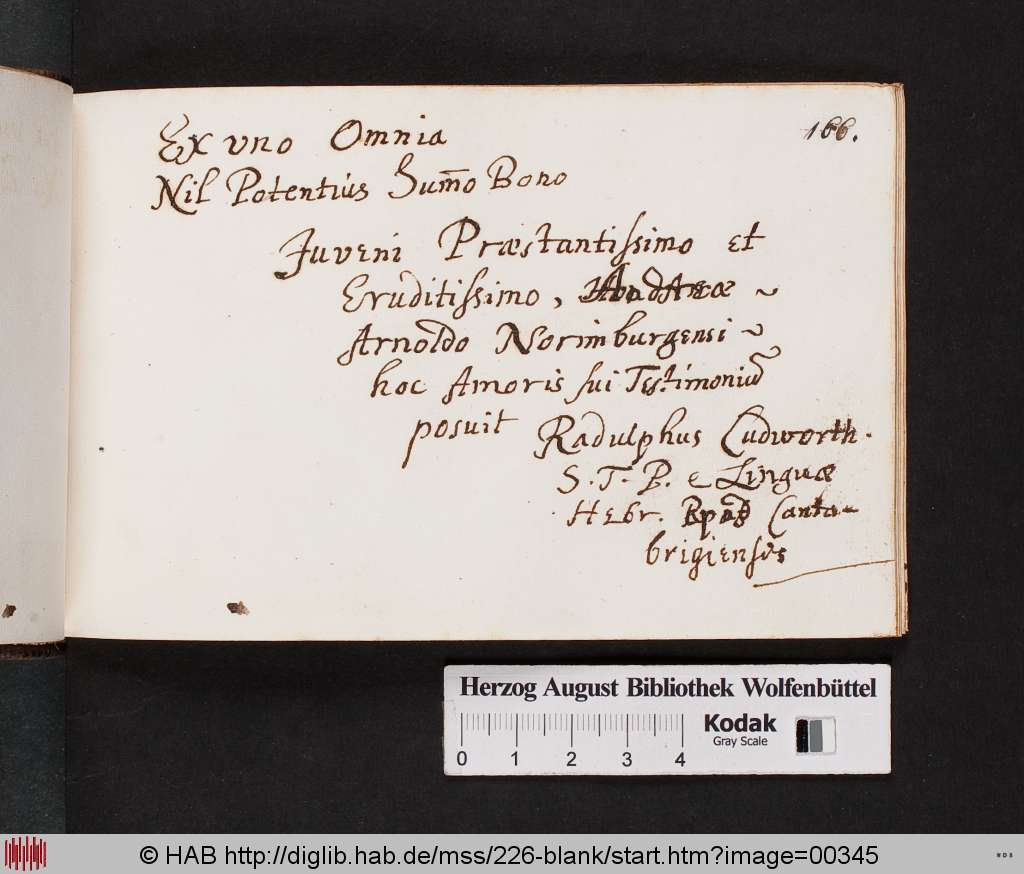 166.
Ex vno Omnia
Nil Potentiùs Sum̄o Bono
Juveni Præstantissimo et
Erùditissimo, Andreæ ~
Arnoldo Norimburgensi ~
hoc Amoris sui Testimoniū
posuit Radulphus Cudworth.
S. T. P. & Linguæ
Hebr. Canta-
brigiensis
Herzog August Bibliothek Wolfenbüttel
Kodak
Gray Scale
0 1 2 3 4
© HAB http://diglib.hab.de/mss/226-blank/start.htm?image=00345
WDB